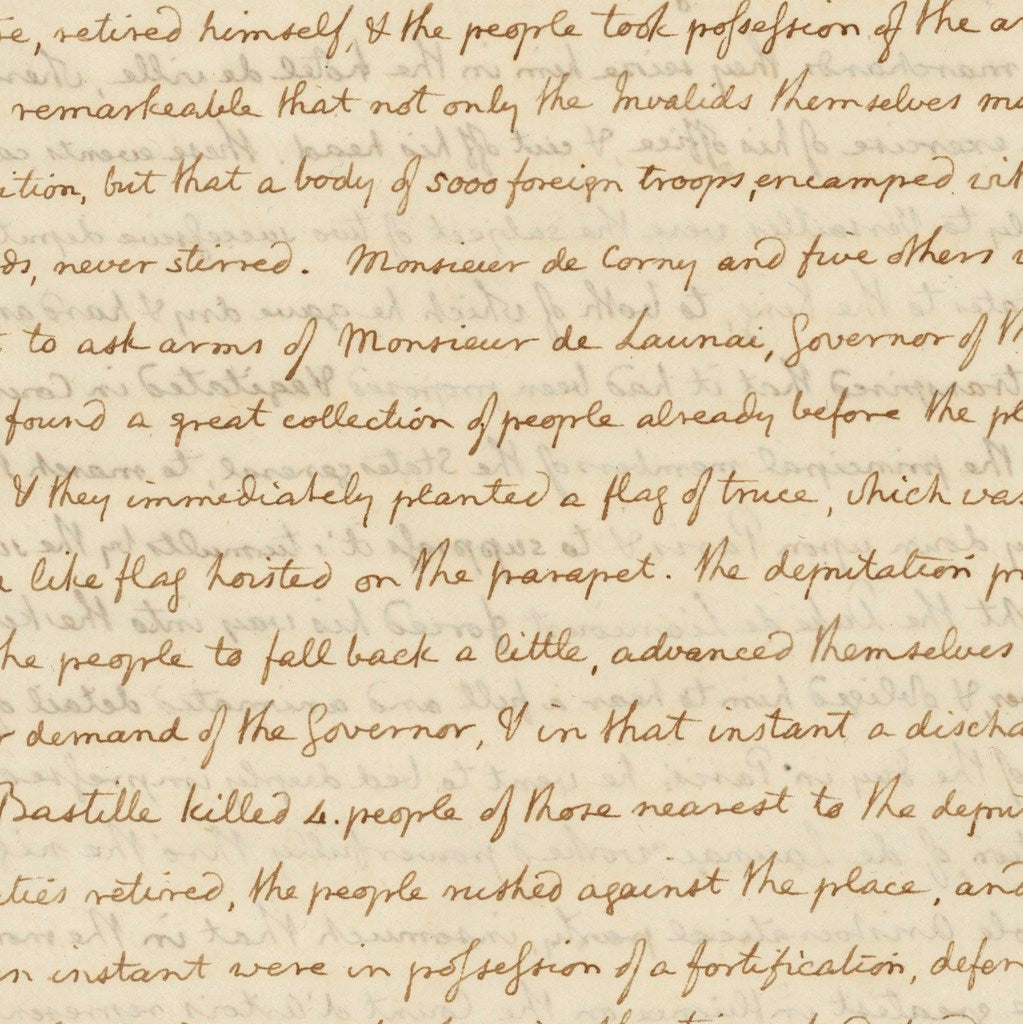 re, retired himself, & the people took possession of the a
remarkeable that not only the Invalids themselves ma
ition, but that a body of 5000 foreign troops, encamped wit
ds, never stirred. Monsieur de Corny and five others
to ask arms of Monsieur de Launai, Governor of th
found a great collection of people already before the pl
& they immediately planted a flag of truce, which was
a like flag hoisted on the parapet. the deputation pr
he people to fall back a little, advanced themselves
r demand of the Governor, & in that instant a discha
Bastille killed 4. people of those nearest to the depu
ties retired, the people rushed against the place, and
n instant were in possession of a fortification, defen